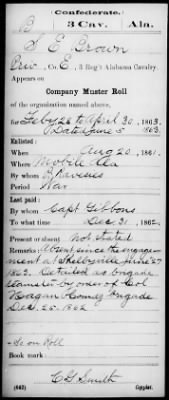 Confederate.
B 3 Cav. Ala.
S E Brown
Priv, Co. E, 3 Reg't Alabama Cavalry.
Appears on
Company Muster Roll
of the organization named above,
for Feby 28 to April 30, 1863.
Dated June 5 1863.
Enlisted:
When Aug 20, 1861.
Where Mobile Ala
By whom
Period War
Last paid:
By whom Capt Gibbons
To what time Dec 31, 1862.
Present or absent Not stated
Remarks: Absent since the engage-
ment at Shelbyville June 27
1863. Detailed as brigade
teamster by order of Col
Hagan Comdg brigade
Dec. 25. 1862
So on Roll
Book mark:
(642) C G Smith Copyist.